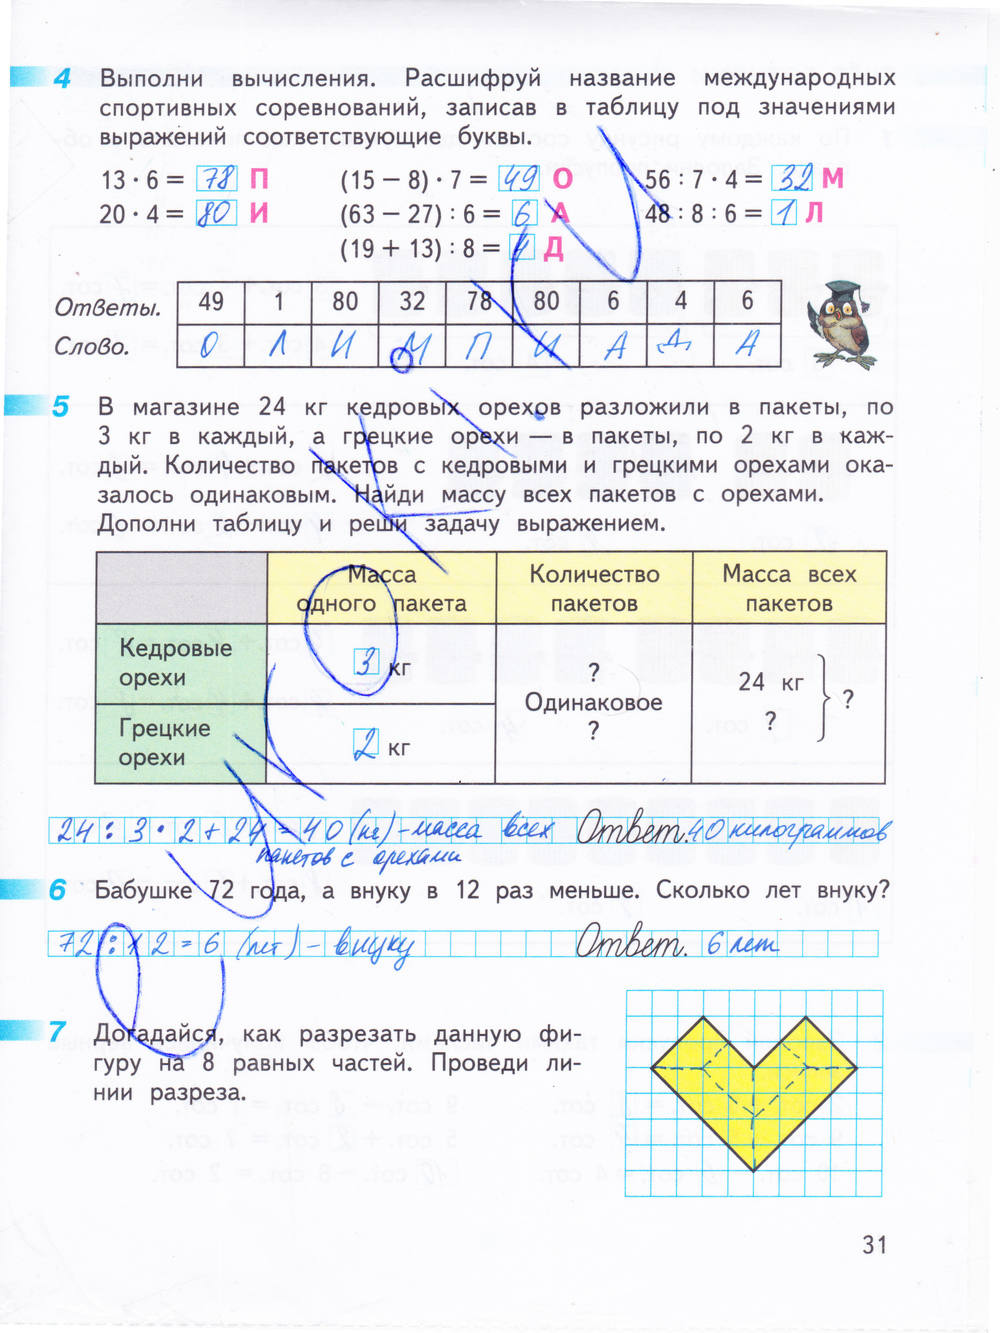 4 Выполни вычисления. Расшифруй название международных
спортивных соревнований, записав в таблицу под значениями
выражений соответствующие буквы.
13 · 6 = 78 П (15 – 8) · 7 = 49 О 56 : 7 · 4 = 32 М
20 · 4 = 80 И (63 – 27) : 6 = 6 А 48 : 8 : 6 = 1 Л
(19 + 13) : 8 = 4 Д
Ответы. 49 1 80 32 78 80 6 4 6
Слово. О Л И М П И А Д А
5 В магазине 24 кг кедровых орехов разложили в пакеты, по
3 кг в каждый, а грецкие орехи – в пакеты, по 2 кг в каж-
дый. Количество пакетов с кедровыми и грецкими орехами ока-
залось одинаковым. Найди массу всех пакетов с орехами.
Дополни таблицу и реши задачу выражением.
Масса одного пакета Количество пакетов Масса всех пакетов
Кедровые орехи 3 кг ? 24 кг
Одинаковое ?
Грецкие орехи 2 кг ? ?
24 : 3 · 2 + 24 = 40 (кг) – масса всех Ответ. 40 килограммов
пакетов с орехами
6 Бабушке 72 года, а внуку в 12 раз меньше. Сколько лет внуку?
72 : 12 = 6 (лет) – внуку Ответ. 6 лет
7 Догадайся, как разрезать данную фи-
гуру на 8 равных частей. Проведи ли-
нии разреза.
31